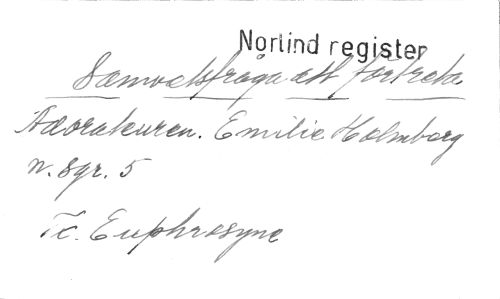 Norlind register
Samvetsfråga att förtreta
Advokaturen. Emilie Holmberg
n. sgr. 5
Tc. Euphrosyne